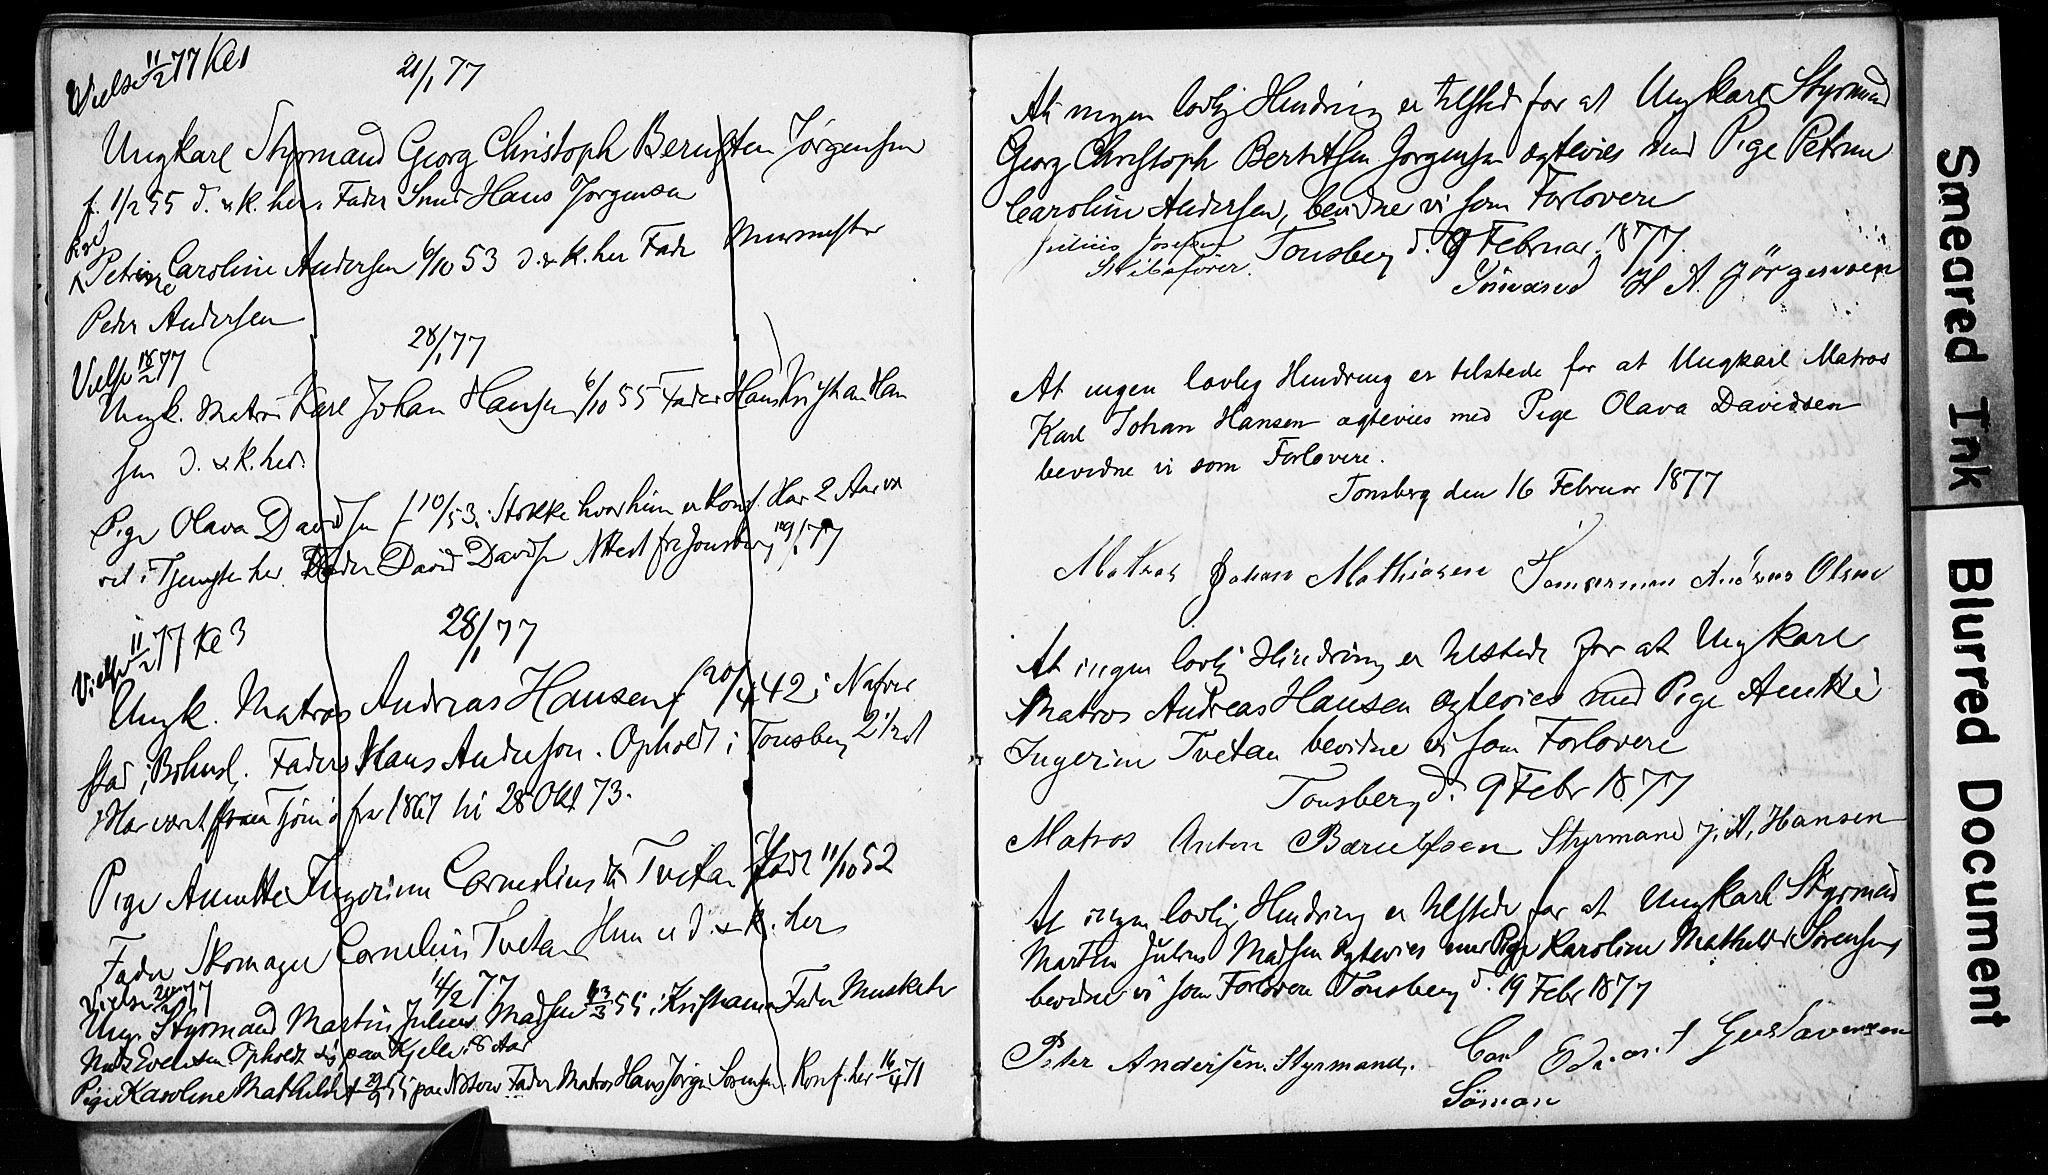 Vielse 11/2 77 Kl 1
21/1 77
Ungkarl Styrmand Georg Christoph Berntsen Jørgensen
f. 1/2 55 d. & k. her. Fader Hans Jørgensen
Petrine Caroline Andersen 6/10 53 d. & k. her Fader Murmester
Peder Andersen
28/1 77
Vielse 18/2 77
Ungk. Matros Karl Johan Hansen 6/10 55 Fader Hans Kristian Han
sen d. & k. her.
Pige Olava Davidsen f 10/53 i Stokke hvor hun er konf. Har 2 Aar
vet i Tjeneste her. Fader David Davidsen Attest fra Tønsberg 77
28/1 77
Vielse 11/2 77 Kl 3
Ungk. Matros Andreas Hansen f 20/4 42 i
stad i Bohusl. Fader Hans Anderson. Opholdt i Tønsberg
Har været paa Tjømø fra 1867 til 28 Okt 73.
Pige Anette Ingerine Cornelius Tvetan født 11/10 52
Fader Skomager Cornelius Tvetan Hun er d. & k. her
14/2 77
Vielse 77
Ung. Styrmand Martin Julius Madsen 55 i Kristiania Fader Musketer
Mads Evensen Opholdt sig paa 8 Aar
Pige Karoline Mathilde f 55 paa Nøterø Fader Matros Hans Jørgen Sørensen. Konf. her 16/4 71
At ingen lovlig Hindring er tilsted for at Ungkarl Styrmand
Georg Christoph Berntsen Jørgensen ægtevies med Pige Petrine
Caroline Andersen, bevidne vi som Forlovere
Tønsberg d. 9 Februar 1877.
Julius Josefsen
Skibsfører.
H A Jörgensen
At ingen lovlig Hindring er tilstede for at Ungkarl Matros
Karl Johan Hansen ægtevies med Pige Olava Davidsen
bevidne vi som Forlovere.
Tønsberg den 16 Februar 1877
Matros Johan Mathiasen Tømerman Andreas Olsen
At ingen lovlig Hindring er tilstede for at Ungkarl
Matros Andreas Hansen ægtevies med Pige Anette
Ingerine Tvetan bevidne vi som Forlovere
Tønsberg d. 9 Febr 1877
Matros Anton Bærntsen Styrmand J. A. Hansen
At ingen lovlig Hindring er tilstede for at Ungkarl Styrmand
Martin Julius Madsen ægtevies med Pige Karoline Mathilde Sørensen,
bevidne vi som Forlovere Tønsberg d. 19 Febr 1877
Peter Andersen. Styrmand. Carl Edvart Gustavensen
Söman
Smeared Ink
Blurred Document